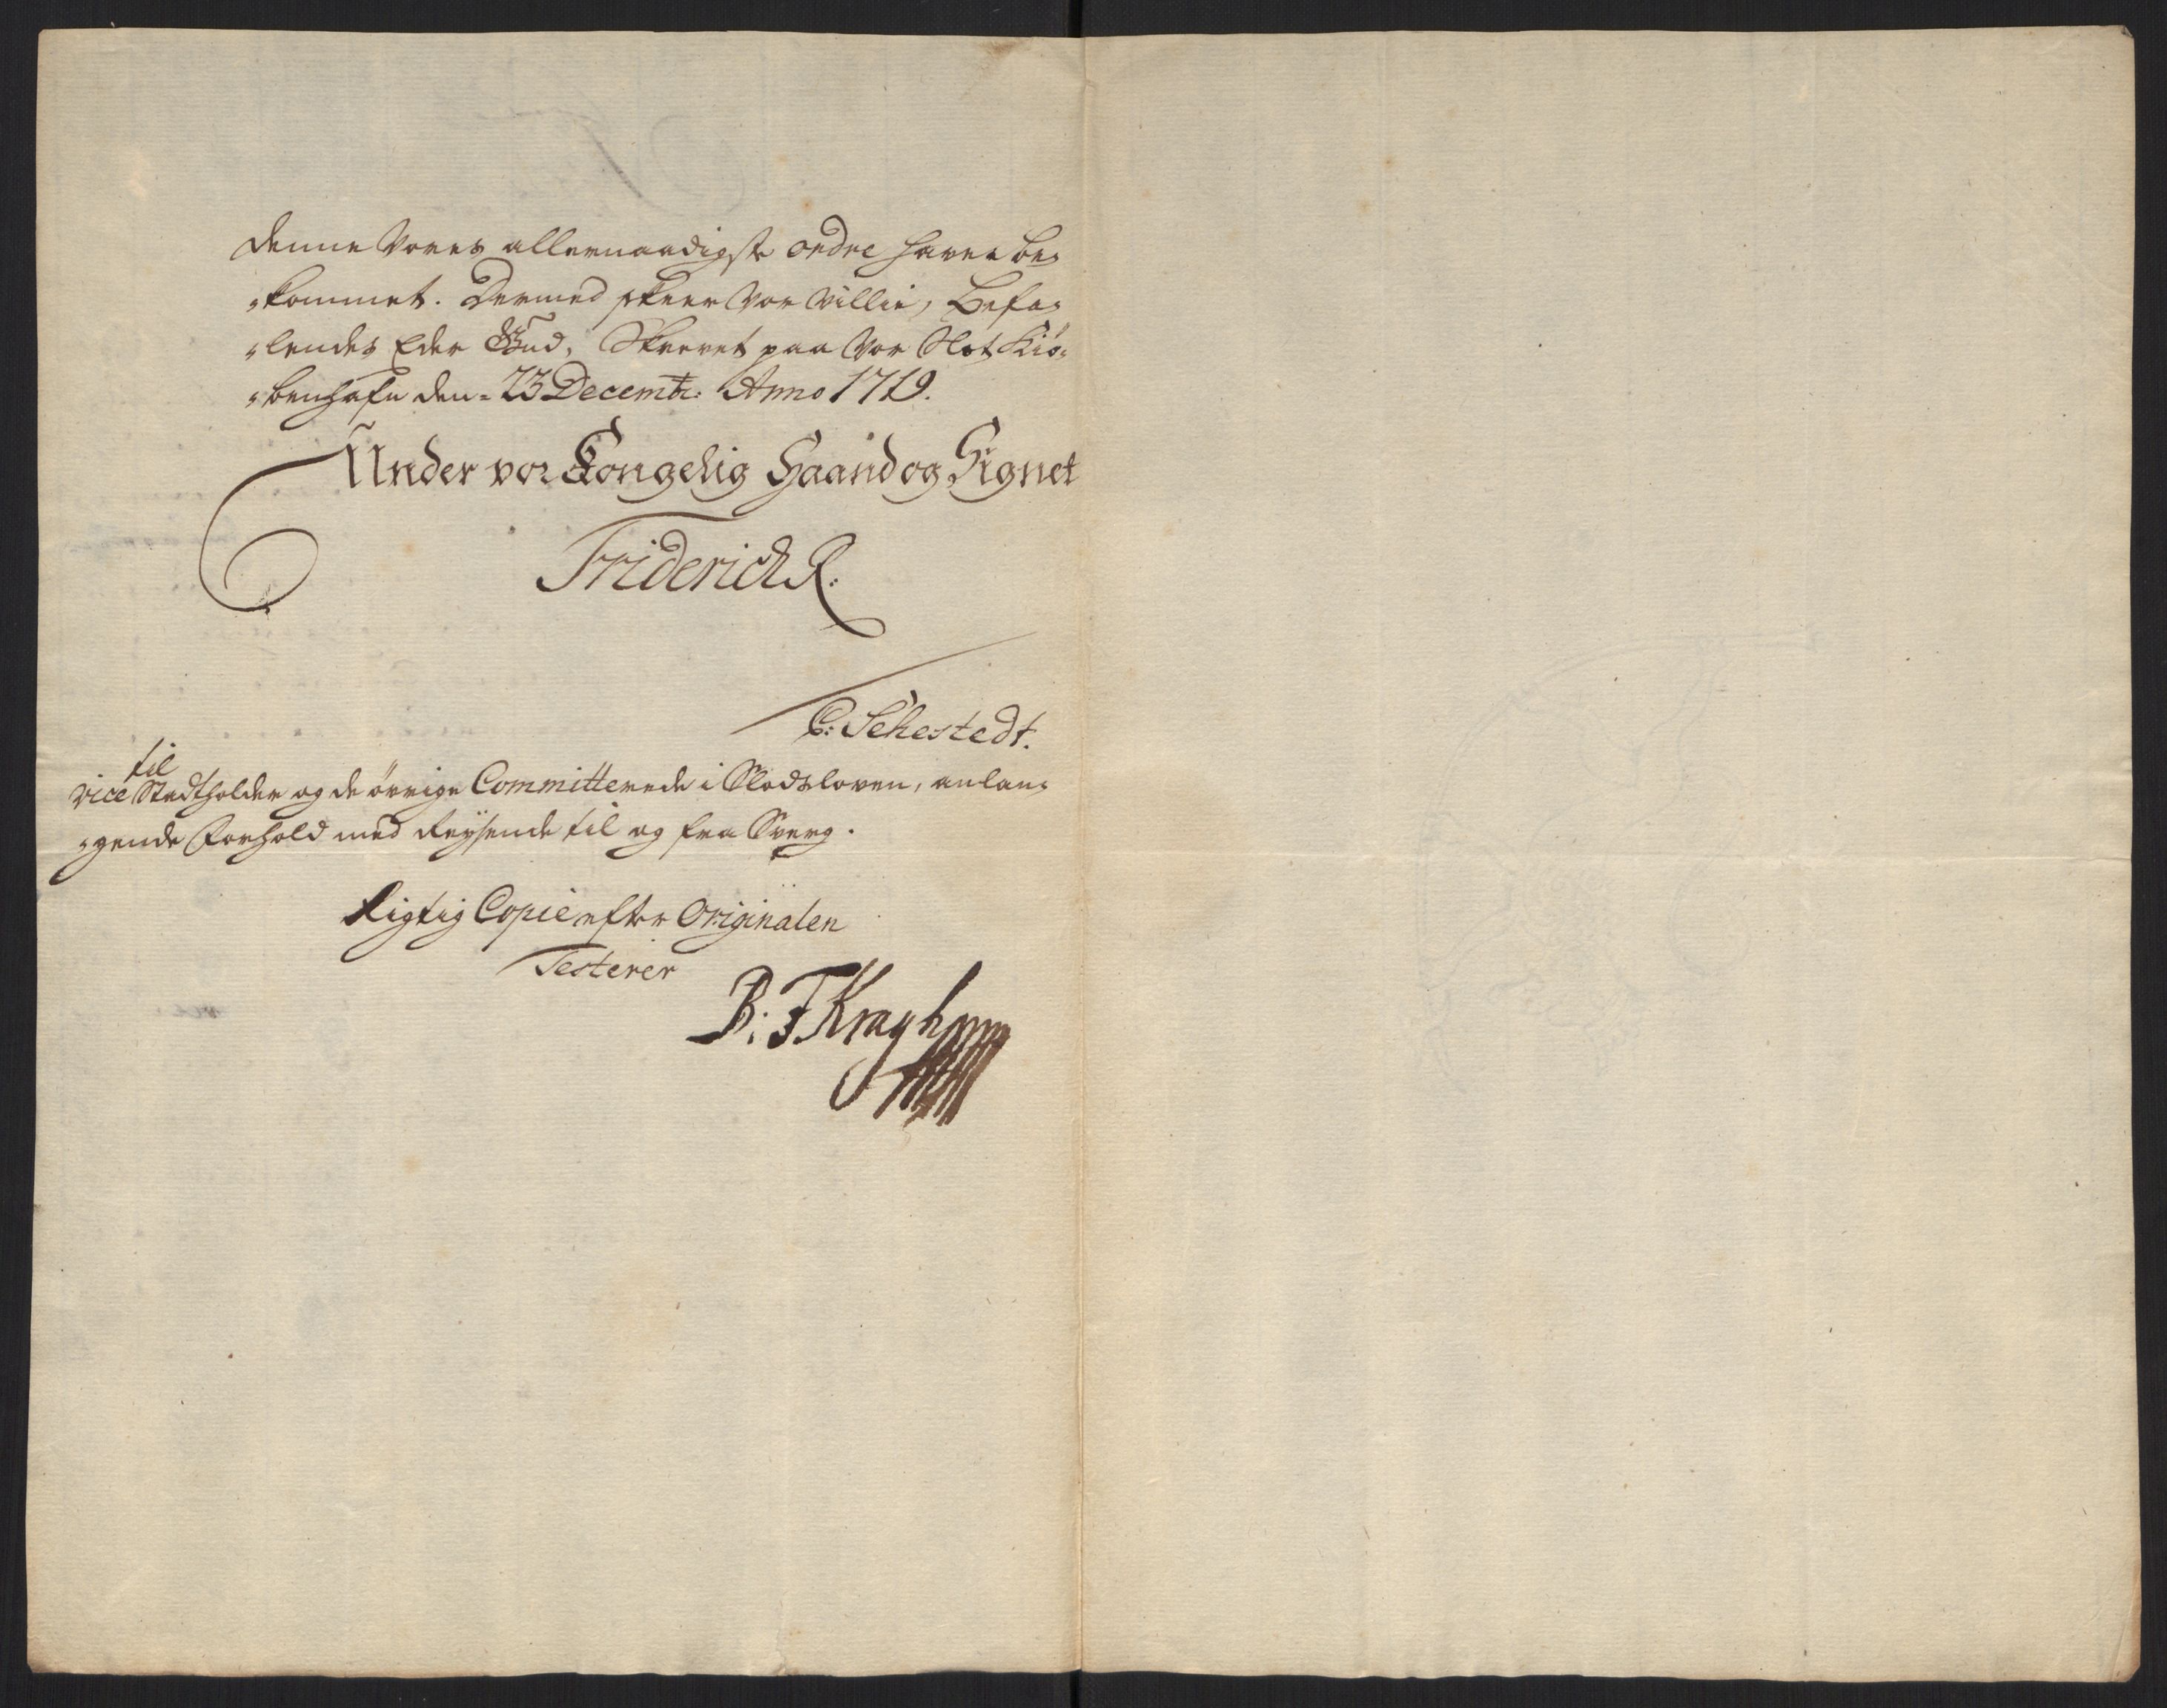 denne Vores allernaadigste ordre haver be-
-kommet. Dermed skeer Vor Villie, Befa-
-lendes Eder Gud, Skrevet paa Vor Slot Kiø-
-benhafn den = 23 Decembr: Anno 1719.
Under vor Kongelig Haand og Signet
Friderich R:
C: Sehestedt.
til
vice Stadtholder og de øvrige Committerede i Slodsloven, anlan-
-gende Forhold med Reysende til og fra Sverg.
Rigtig Copie efter Originalen
Testerer
B: F Kragh